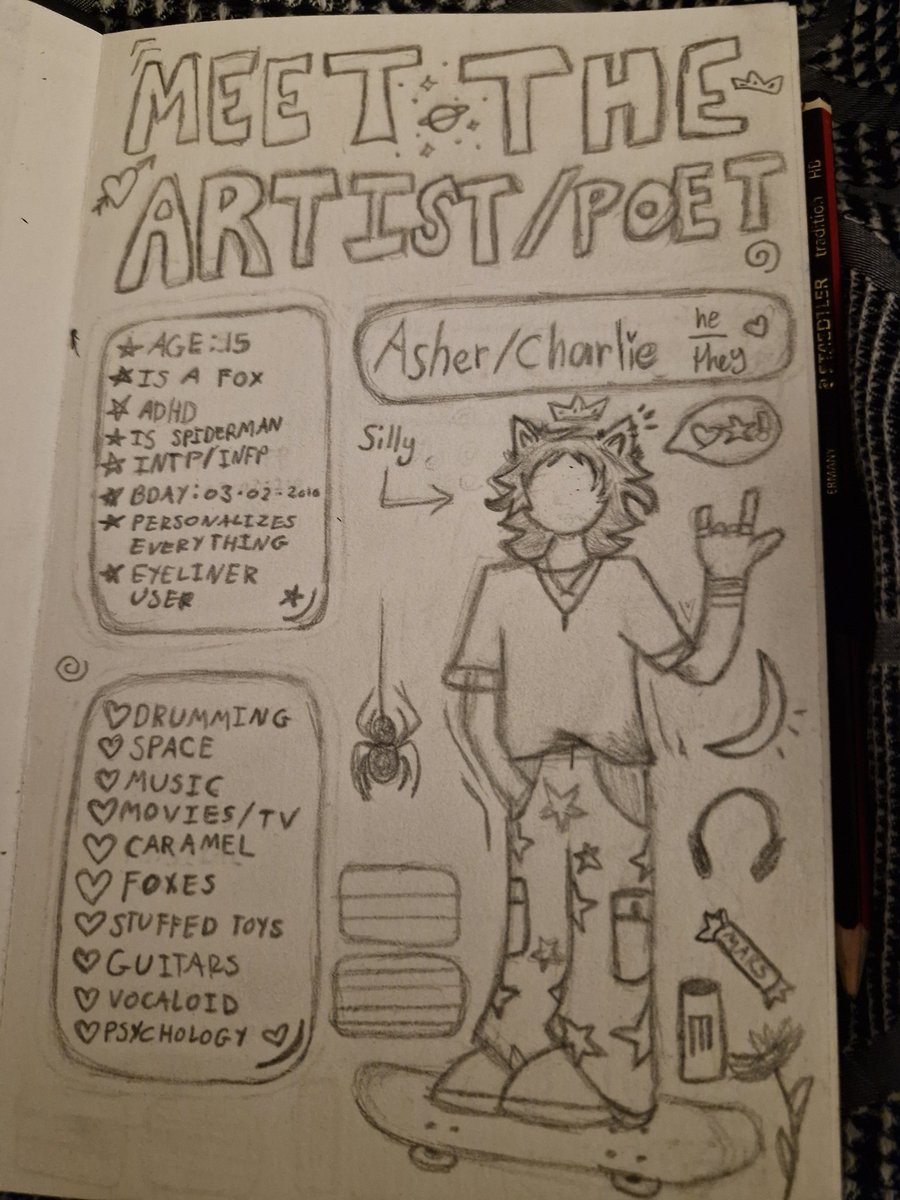 MEET THE
ARTIST/POET
AGE:15
IS A FOX
ADHD
IS SPIDERMAN
INTP/INFP
BDAY:03-02-2010
PERSONALIZES
EVERYTHING
EYELINER
USER
Asher/Charlie he/they
Silly
DRUMMING
SPACE
MUSIC
MOVIES/TV
CARAMEL
FOXES
STUFFED TOYS
GUITARS
VOCALOID
PSYCHOLOGY
MARS
STAEDTLER tradition HB
GERMANY